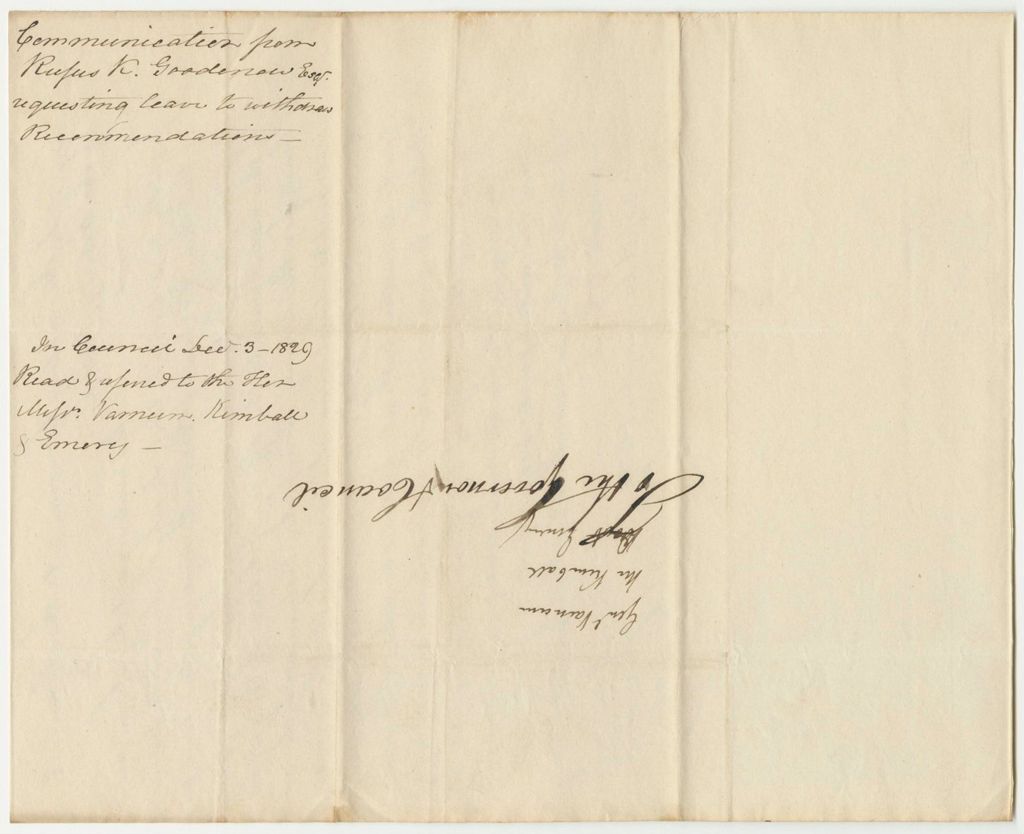 Communication from
Rufus K. Goodenow Esqr.
requesting leave to withdraw
Recommendations —
In Council Dec. 3 - 1829
Read & referred to the
Messrs. Varnum, Kimball
& Emery —
To the Governor & Council
Emery
Mr Kimball
Genl Varnum